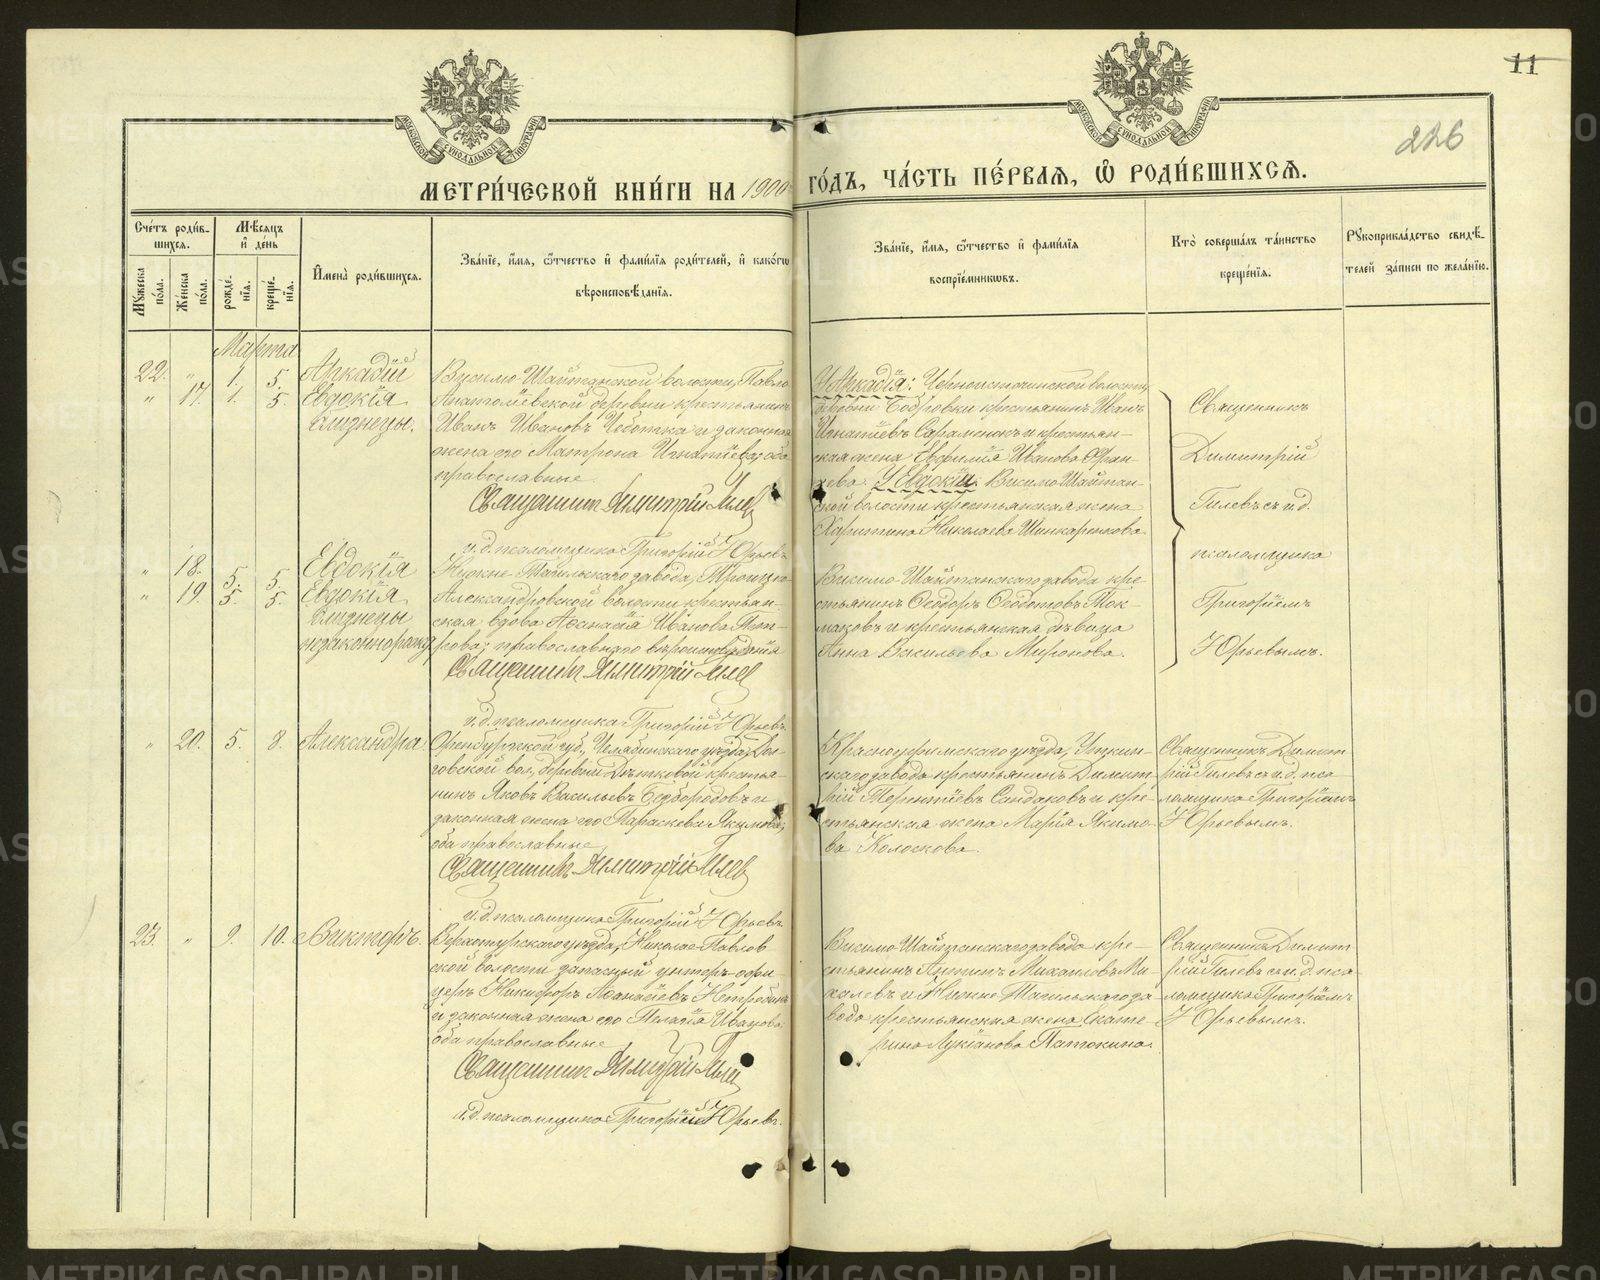 11
226
МОСКОВСКОЙ СѴНОДАЛЬНОЙ ТИПОГРАФІИ
МОСКОВСКОЙ СѴНОДАЛЬНОЙ ТИПОГРАФІИ
МЕТРИ́ЧЕСКОЙ КНИ́ГИ НА 1900 ГО́ДЪ, ЧА́СТЬ ПЕ́РВАЯ, Ѡ҆ РОДИ́ВШИХСѦ.
Сче́тъ роди́в-
шихсѧ.
Мѣ́сѧцъ
и҆ де́нь
Мꙋ́жеска
по́ла.
Же́нска
по́ла.
рожде́-
нїѧ.
креще́-
нїѧ.
И҆мена̀ роди́вшихсѧ.
Зва́нїе, и҆́мѧ, ѻ҆́тчество и҆ фами́лїѧ роди́телей, и҆ како́гѡ
вѣроисповѣ́данїѧ.
Зва́нїе, и҆́мѧ, ѻ҆́тчество и҆ фами́лїѧ
воспрїе́мниковъ.
Кто̀ соверша́лъ та́инство
креще́нїѧ.
Рꙋкоприкла́дство свидѣ́-
телей за́писи по жела́нїю.
Марта
22. " 1. 5. Аркадій
" 17. 1. 5. Евдокія
близнецы.
Висимо-Шайтанской волости, Павло-
Анатоліевской деревни крестьянинъ
Иванъ Ивановъ Чеботка и законная
жена его Матрона Игнатіева; оба
православные
Священникъ Димитрій Гилев
и. д. псаломщика Григорій Юрьевъ
У Аркадія: Черноисточинской волости,
деревни Бобровки крестьянинъ Иванъ
Игнатіевъ и крестьян-
ская жена Евфимія Иванова
У Евдокіи Висимо-Шайтан-
ской волости крестьянская жена
Харитина Николаева Шинкаренкова
Священникъ
Димитрій
Гилевъ съ и. д.
псаломщика
Григоріемъ
Юрьевымъ.
" 18. 5. 5. Евдокія
" 19. 5. 5. Евдокія
близнецы
незаконнорожд.
Нижне-Тагильскаго завода, Троицко-
Александровской волости крестьян-
ская вдова Аѳанасія Иванова Пет-
рова; православнаго вѣроисповѣданія
Священникъ Димитрій Гилев
и. д. псаломщика Григорій Юрьевъ
Висимо-Шайтанскаго завода кре-
стьянинъ Ѳеодоръ Ѳедотовъ Ток-
маковъ и крестьянская дѣвица
Анна Васильева Миронова.
" 20. 5. 8. Александра
Оренбургской губ., Челябинскаго уѣзда,
вол., деревни крестья-
нинъ Яковъ Васильевъ Бедбородовъ и
законная жена его Параскева Якимова;
оба православные
Священникъ Димитрій Гилев
и. д. псаломщика Григорій Юрьевъ
Красноуфимскаго уѣзда, Уткин-
скаго завода крестьянинъ Димит-
рій Терентіевъ Сандаковъ и кре-
стьянская жена Марія Якимо-
ва Колоскова.
Священникъ Димит-
рій Гилевъ съ и. д. пса-
ломщика Григоріемъ
Юрьевымъ.
23. " 9. 10. Викторъ.
Верхотурскаго уѣзда, Николае-Павлов-
ской волости запасный унтеръ-офи-
церъ Никифоръ Аѳанасіевъ Нетребинъ
и законная жена его Пелагія Иванова
оба православные
Священникъ Димитрій Гилев
и. д. псаломщика Григорій Юрьевъ.
Висимо-Шайтанскаго завода кре-
стьянинъ Антипъ Михаиловъ Ми-
халевъ и Нижне-Тагильскаго за-
вода крестьянская жена Екате-
рина Лукіанова Патокина.
Священникъ Димит-
рій Гилевъ съ и. д. пса-
ломщика Григоріемъ
Юрьевымъ.
METRIKI.GASO-URAL.RU